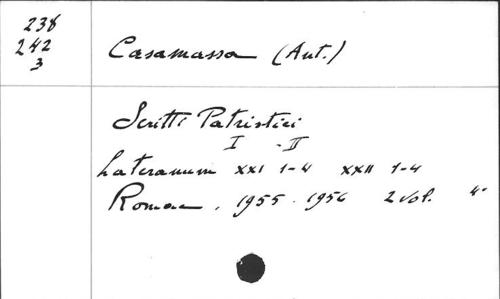 238
242
3
Casamassa (Ant.)
Scritti Patristici
I - II
Lateranum XXI 1-4 XXII 1-4
Romae. 1955. 1956 2 vol. 4°